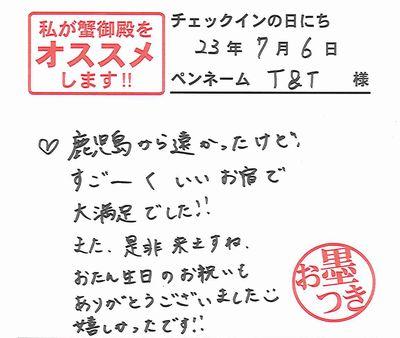 私が蟹御殿を
オススメ
します!!
チェックインの日にち
23年7月6日
ペンネーム T&T 様
♡鹿児島から遠かったけど、
すごーくいいお宿で
大満足でした!!
また、是非来ますね。
おたん生日のお祝いも
ありがとうございました☺
嬉しかったです!!
お墨つき